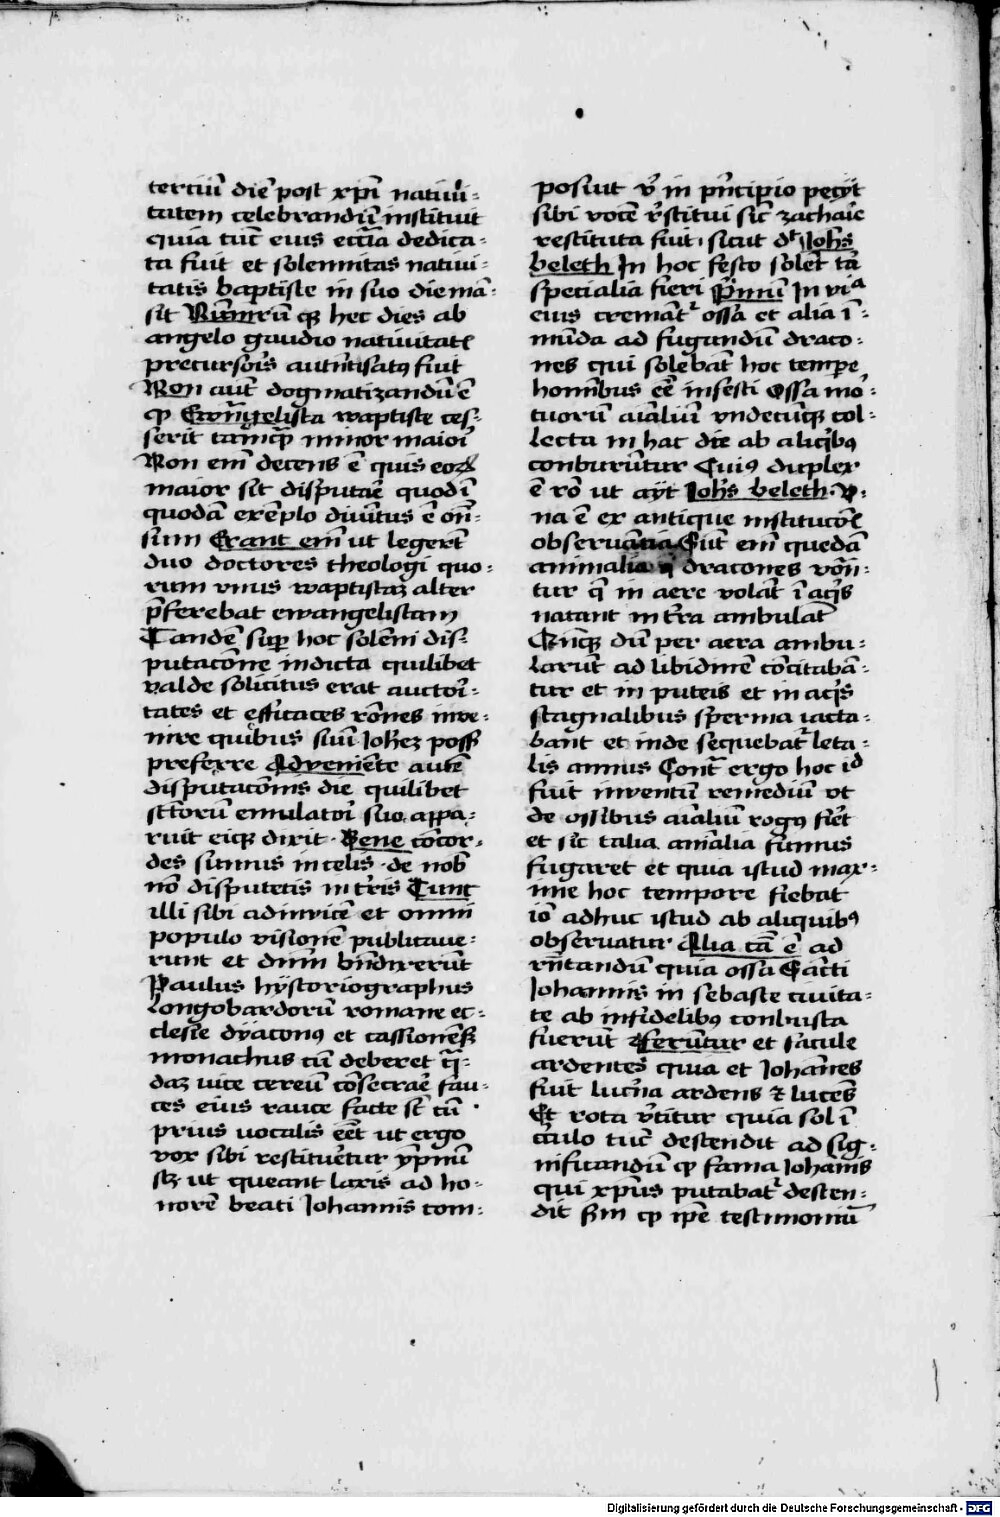 terciū diē post xp̄i natiui-
tatem celebrandū instituit
quia tūc eius ecc̄ia dedica-
ta fuit et solennitas natiui-
tatis baptiste in suo die mā-
sit hec dies ab
angelo gaudio natiuitatē
precursoris fuit
Non aūt dogmatizandū ē
ꝙ Ewāgelista waptiste ces-
serit tāꝙ̄ minor maiori
Non eni decens ē quis eoꝝ
maior sit disputare quod ī
quodā exēplo diuitus ē on̄-
sum Erant em̄ ut legert̄
duo doctores theologi quo-
rum vnus waptistaꝫ alter
p̄ferebat ewangelistam
Tandē sup̱ hoc solēni dis-
putacōne indicta quilibet
valde solicitus erat auctori-
tates et efficaces rōnes inue-
nire quibus suū Joh̄eꝫ poss̄
preferre Adveniēte autē
disputacōnis die quilibet
sc̄torū emulatori suo appa-
ruit eiqꝫ dixit · Bene cōcor-
des sumus in celis · de nob̄
nō disputetis in tr̄is Tunc
illi sibi adinvicē et omni
populo visionē publicaue-
runt et dn̄m bn̄dixerūt
Paulus hystoriographus
Longobardorū romane ec-
clesie dyaconꝰ et cassionēsis
monachus cū deberet q̄-
daꝫ vice cereū cōsecrare fau-
ces eius rauce facte sc̄ cū
prius uocalis eēt ut ergo
vox sibi restitueretur ympnū
sꝫ ut queant laxis ad ho-
norē beati Johannis com-
posuit v̄ in pn̄cipio pecyt
sibi vocē r̄stitui sic̄ zacharie
restituta fuit · sicut dt̄ Joh̄s
beleth In hoc festo solēt tā
specialia fieri P̄imū In viᵃ
eius cremāt᷑ ossa et alia ī-
mūda ad fugandū draco-
nes qui solebāt hoc tempe
homībus eē infesti Ossa mo-
tuorū aīaliū vndecūqꝫ col-
lecta in hac die ab aliqibꝰ
conburūtur Cuiꝰ duplex
ē rō ut ayt Joh̄s beleth · V-
na ē ex antique institucōē
observātia Sūt em̄ quedā
animalia dracones vōn-
tur q̄ in aere volāt ī aqis
natant in tr̄ra ambulāt
Qn̄qꝫ dū per aera ambu-
larūt ad libidinē cōcitabā-
tur et in puteis et in aqis
stagnalibus sperma iacta-
bant et inde sequebat᷑ leta-
lis annus Contr̄ ergo hoc id
fuit inventū remediū vt
de ossibus aīaliū rogꝰ fiēt
et sic̄ talia aīmalia fumus
fugaret et quia istud max-
ime hoc tempore fiebat
iō adhuc istud ab aliquibꝰ
observatur Alia cā ē ad
rn̄tandū quia ossa Sāncti
Johannis in sebaste ciuita-
te ab infidelibꝰ conbusta
fuerūt Feruntur et facule
ardentes quia et Johānes
fuit lucn̄a ardens ⁊ lucēs
Et rota v̄titur quia sol ī
cīculo tūc descendit ad sig-
nificandū ꝙ fama Johānis
qui xp̄us putabat᷑ descen-
dit sm̄ ꝙ ip̄e testimoniū
Digitalisierung gefördert durch die Deutsche Forschungsgemeinschaft - DFG